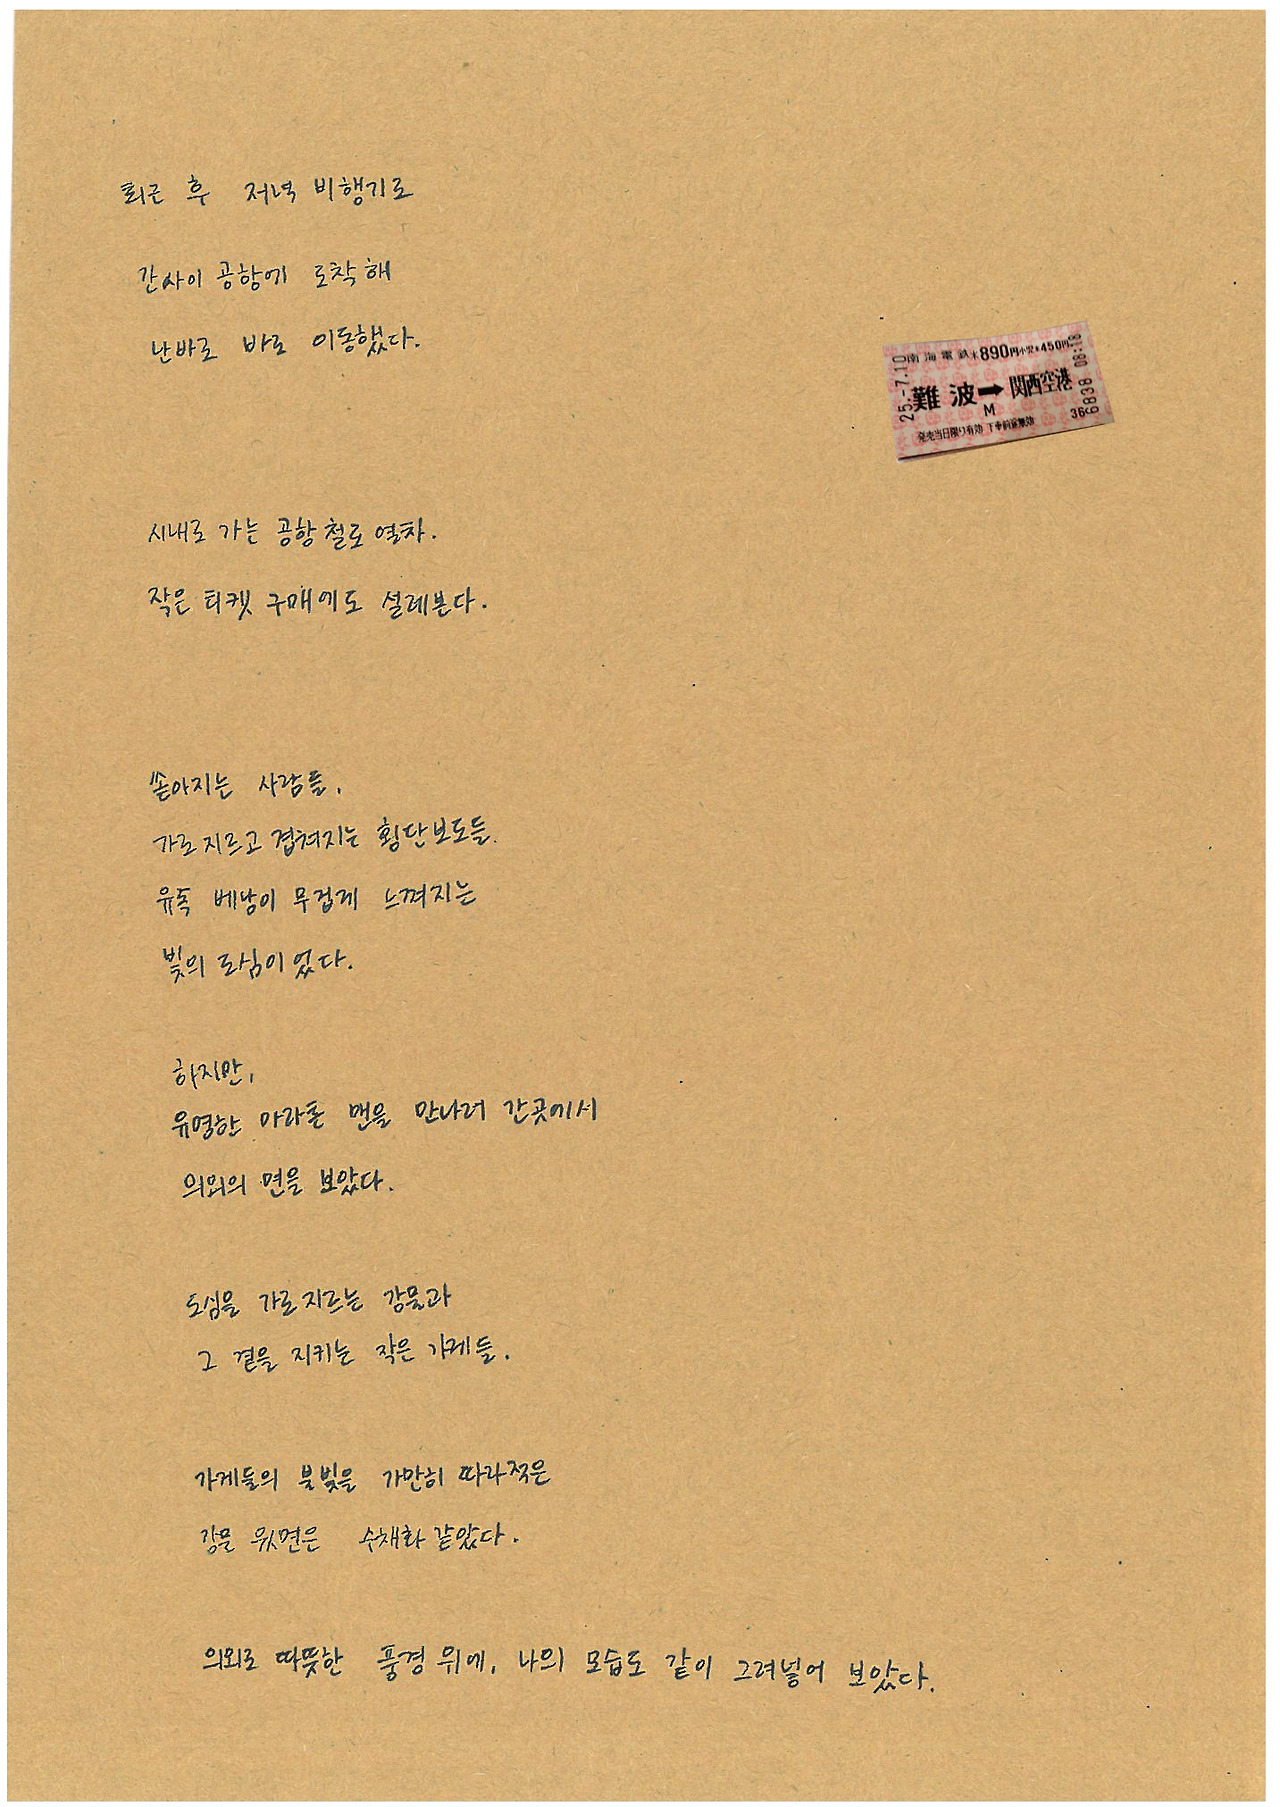 퇴근 후 저녁 비행기로
간사이 공항에 도착해
난바로 바로 이동했다.
南海電鉄 890円 小児 450円
難波➡関西空港
M
25.-7.10
08:18
6838
発売当日限り有効 下車前途無効
시내로 가는 공항철도 열차.
작은 티켓 구매에도 설레본다.
쏟아지는 사람들,
가로지르고 겹쳐지는 횡단보도들.
유독 베낭이 무겁게 느껴지는
빛의 도심이었다.
하지만,
유명한 마라톤 맨을 만나러 간곳에서
의외의 면을 보았다.
도심을 가로지르는 강물과
그 곁을 지키는 작은 가게들.
가게들의 불빛을 가만히 따라적은
강물 윗면은 수채화 같았다.
의외로 따뜻한 풍경 위에, 나의 모습도 같이 그려넣어 보았다.